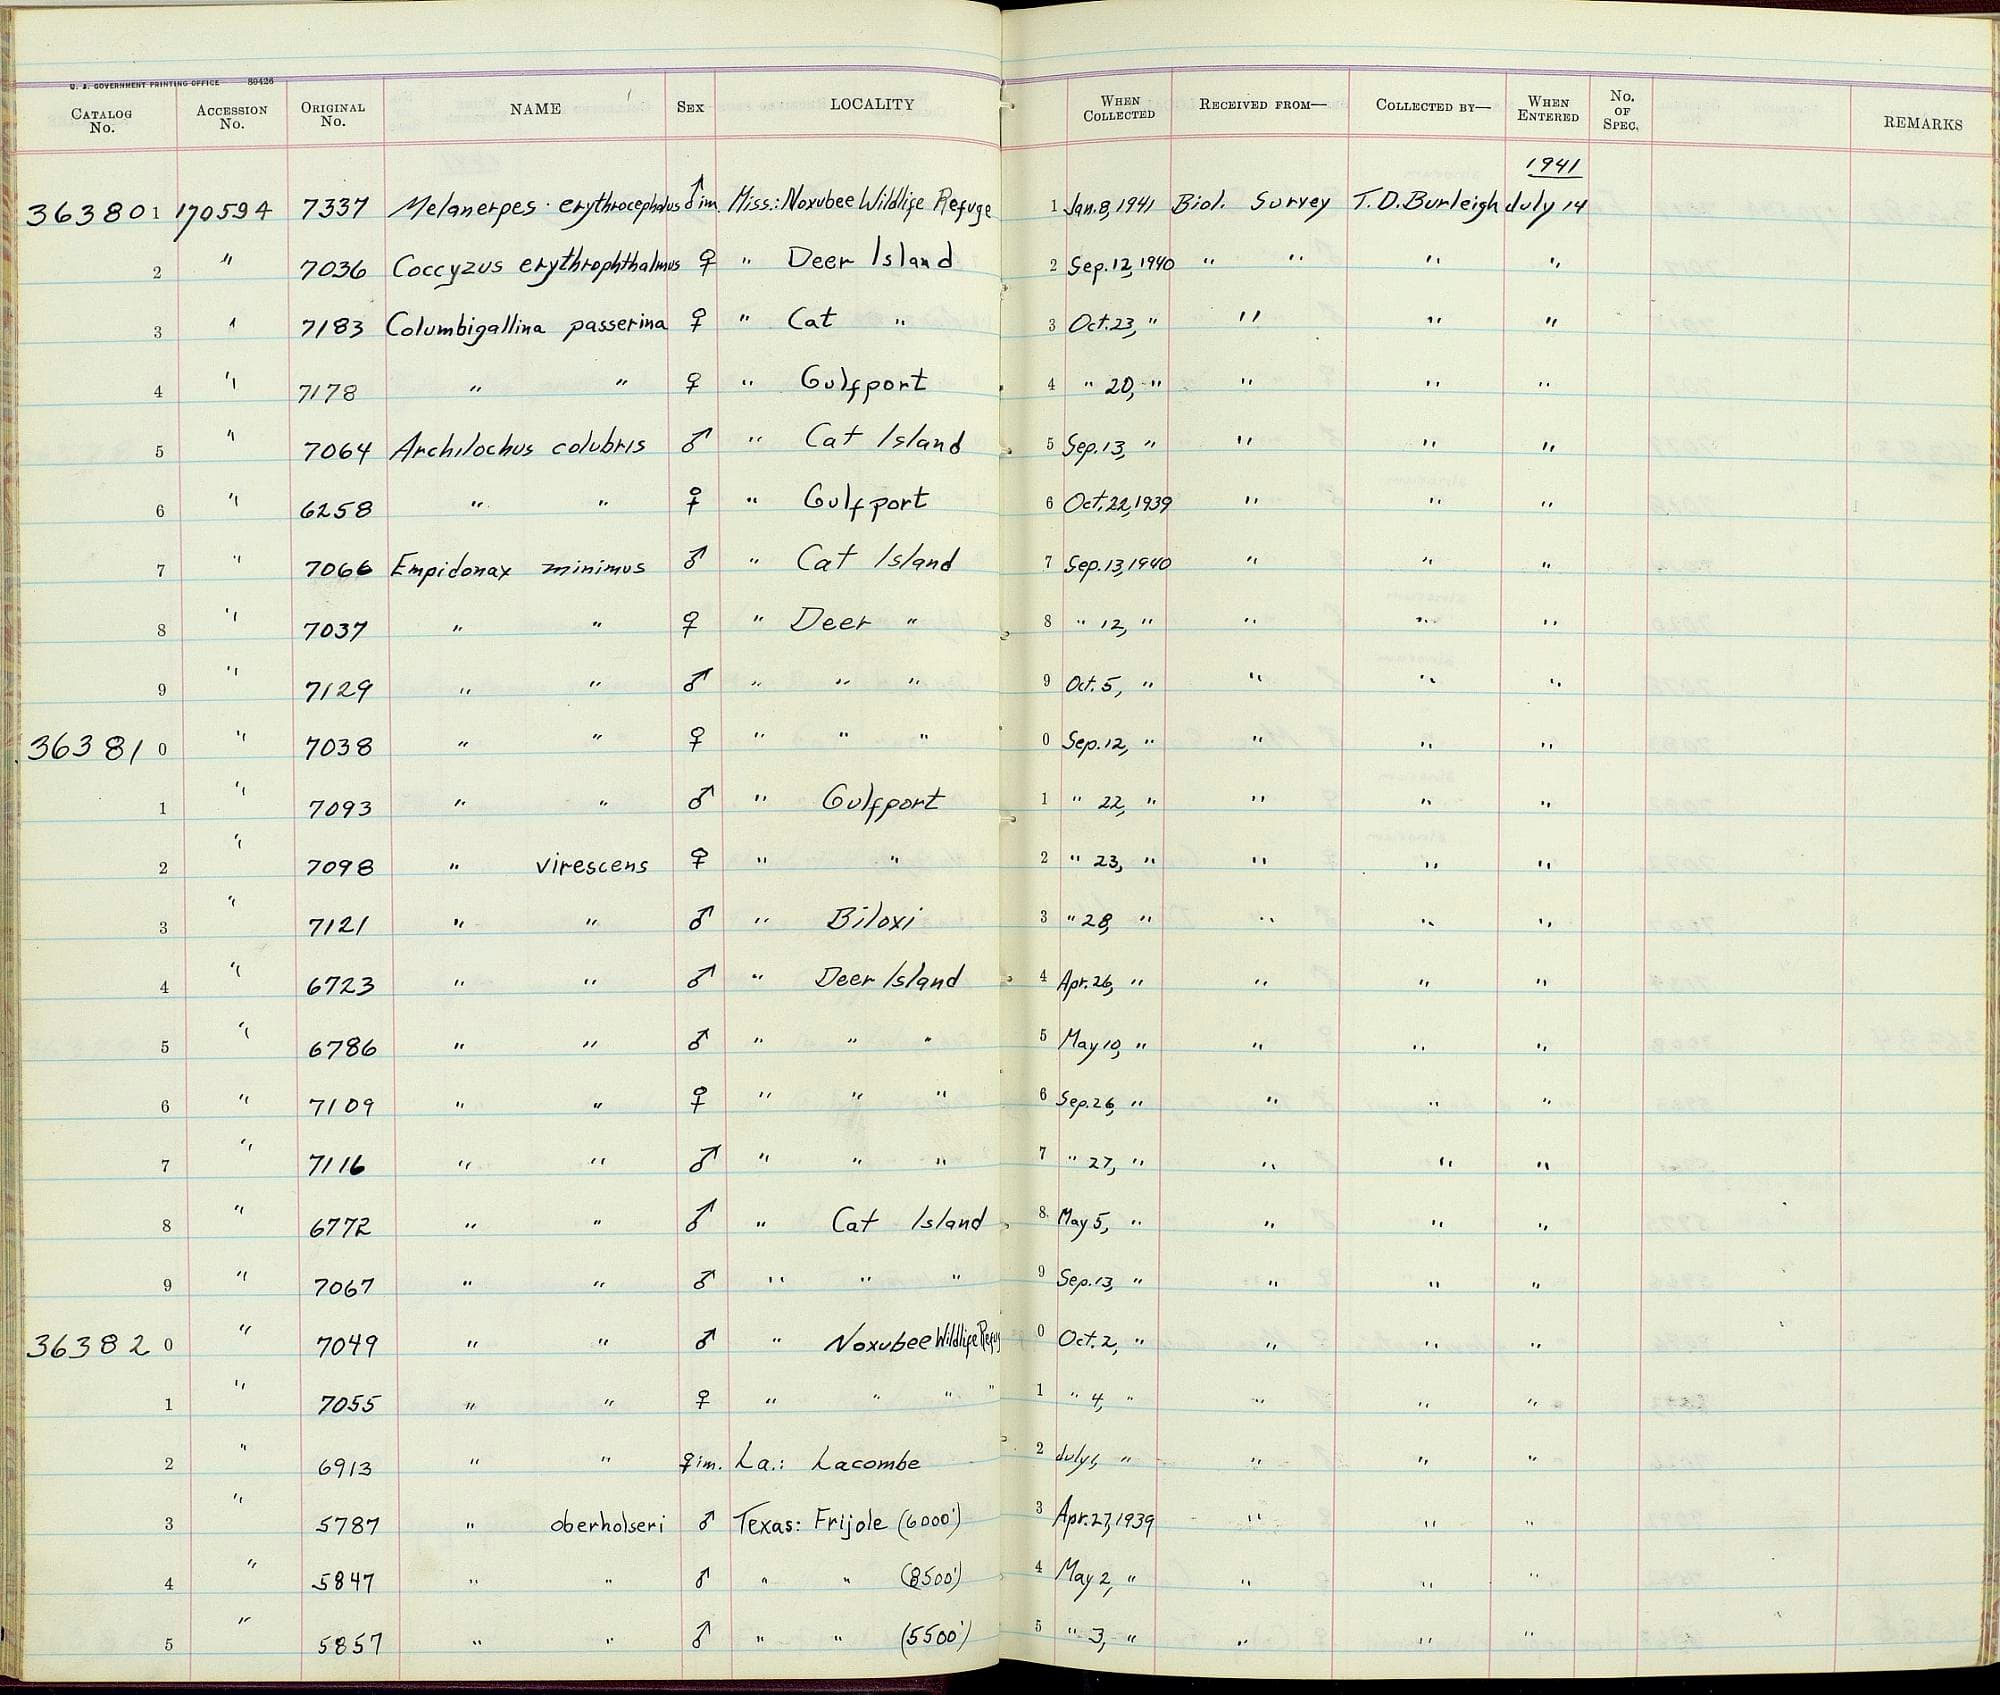 U. S. GOVERNMENT PRINTING OFFICE 80426
CATALOG No. ACCESSION No. ORIGINAL No. NAME SEX LOCALITY WHEN COLLECTED RECEIVED FROM— COLLECTED BY— WHEN ENTERED No. OF SPEC. REMARKS
1941
363801 170594 7337 Melanerpes erythrocephalus ♂im. Miss.: Noxubee Wildlife Refuge 1 Jan. 8, 1941 Biol. Survey T.D. Burleigh July 14
2 " 7036 Coccyzus erythrophthalmus ♀ " Deer Island 2 Sep. 12, 1940 " " " "
3 " 7183 Columbigallina passerina ♀ " Cat " 3 Oct. 23, " " " "
4 " 7178 " " ♀ " Gulfport 4 " 20, " " " "
5 " 7064 Archilochus colubris ♂ " Cat Island 5 Sep. 13, " " " "
6 " 6258 " " ♀ " Gulfport 6 Oct. 22, 1939 " " "
7 " 7066 Empidonax minimus ♂ " Cat Island 7 Sep. 13, 1940 " " "
8 " 7037 " " ♀ " Deer " 8 " 12, " " " "
9 " 7129 " " ♂ " " " 9 Oct. 5, " " " "
363810 " 7038 " " ♀ " " " 0 Sep. 12, " " " "
1 " 7093 " " ♂ " Gulfport 1 " 22, " " " "
2 " 7098 " virescens ♀ " " 2 " 23, " " " "
3 " 7121 " " ♂ " Biloxi 3 " 28, " " " "
4 " 6723 " " ♂ " Deer Island 4 Apr. 26, " " " "
5 " 6786 " " ♂ " " " 5 May 10, " " " "
6 " 7109 " " ♀ " " " 6 Sep. 26, " " " "
7 " 7116 " " ♂ " " " 7 " 27, " " " "
8 " 6772 " " ♂ " Cat Island 8 May 5, " " " "
9 " 7067 " " ♂ " " " 9 Sep. 13, " " " "
363820 " 7049 " " ♂ " Noxubee Wildlife Refug 0 Oct. 2, " " " "
1 " 7055 " " ♀ " " " " 1 " 4, " " " "
2 " 6913 " " ♀im. La.: Lacombe 2 July " " " "
3 " 5787 " oberholseri ♂ Texas: Frijole (6000') 3 Apr. 27, 1939 " " "
4 " 5847 " " ♂ " " (8500') 4 May 2, " " " "
5 " 5857 " " ♂ " " (5500') 5 " 3, " " " "